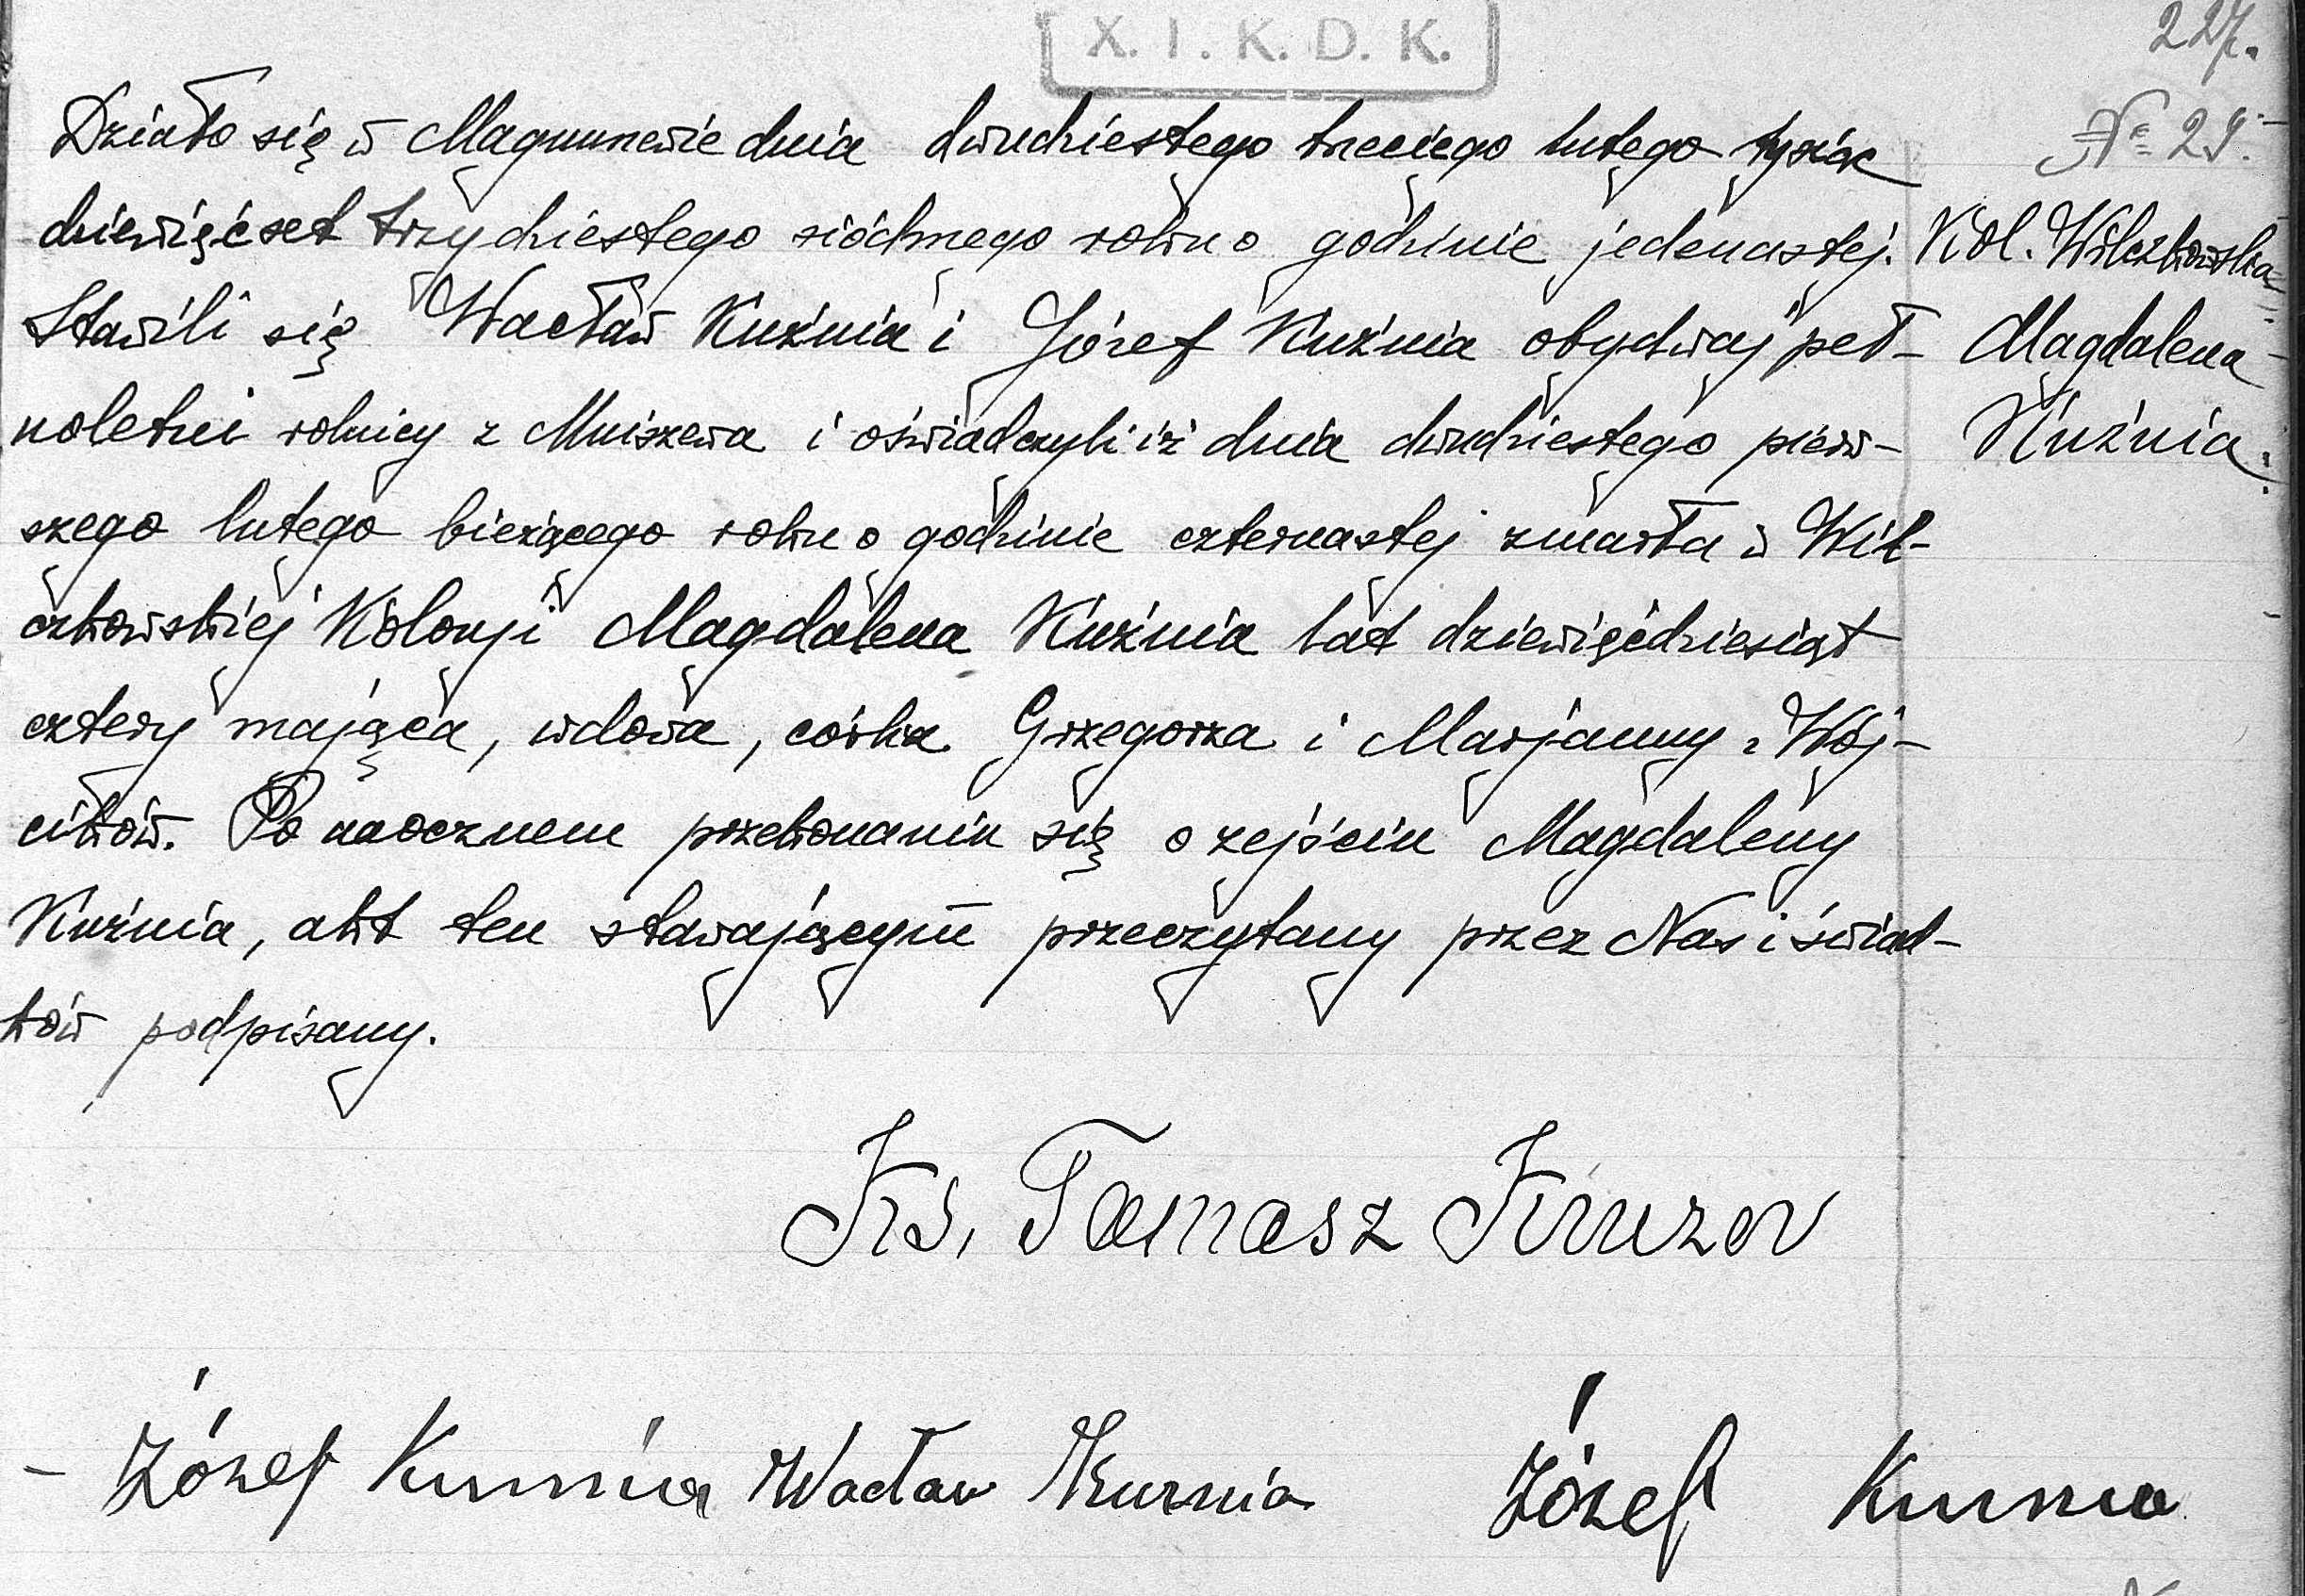 X. I. K. D. K.
227.
Działo się w Magnuszewie dnia dwudziestego trzeciego lutego tysiąc
dziewięćset trzydziestego siódmego roku o godzinie jedenastej.
Stawili się Wacław Kuźnia i Józef Kuźnia obydwaj peł-
noletni rolnicy z Mniszewa i oświadczyli iż dnia dwudziestego pierw-
szego lutego bieżącego roku o godzinie czternastej zmarła w Wil-
czkowskiej Kolonji Magdalena Kuźnia lat dziewięćdziesiąt
cztery mająca, wdowa, córka Grzegorza i Marjanny z Wój-
cików. Po naocznem przekonaniu się o zejściu Magdaleny
Kuźnia, akt ten stawającym przeczytany przez Nas i świad-
ków podpisany.
Ks. Tomasz
Józef Kuźnia Wacław Kuźnia Józef Kuźnia
Kol. Wilczkowska
Magdalena
Kuźnia.